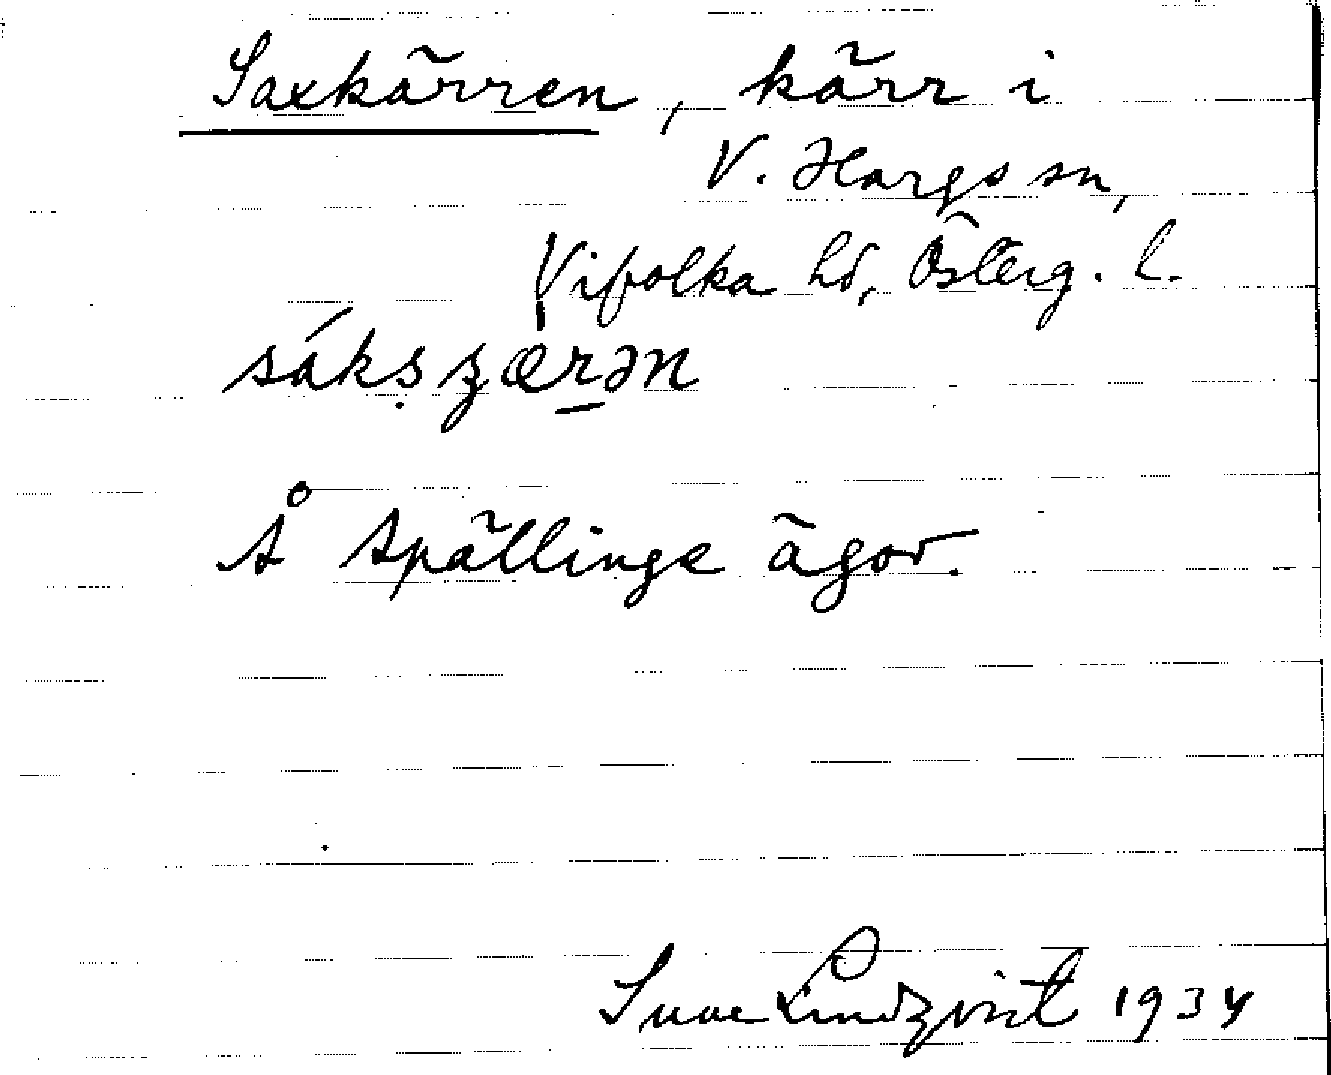 Saxkärren, kärr i
V. Hargs sn,
Vifolka hd, Österg. l.
sáksʒærən
Å Spällinge ägor.
Sune Lindqvist 1934